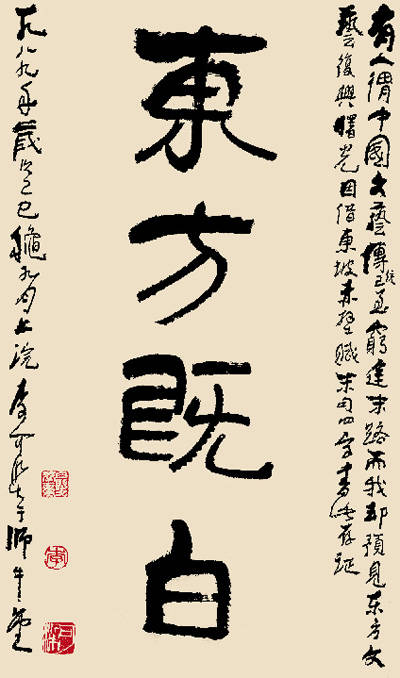 有人謂中國文藝傳統已至窮途末路而我却預見東方文
藝復興曙光因借東坡赤壁賦末句四字書此存証
東方既白
一九八九年歲次己巳龝九月上浣李可染于師牛堂